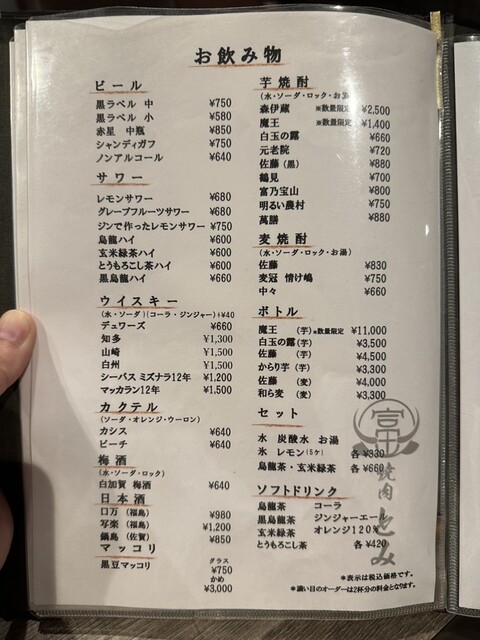 お飲み物
ビール
黒ラベル 中 ¥750
黒ラベル 小 ¥580
赤星 中瓶 ¥850
シャンディガフ ¥750
ノンアルコール ¥640
サワー
レモンサワー ¥680
グレープフルーツサワー ¥680
ジンで作ったレモンサワー ¥750
烏龍ハイ ¥600
玄米緑茶ハイ ¥600
とうもろこし茶ハイ ¥600
黒烏龍ハイ ¥660
ウイスキー
(水・ソーダ)(コーラ・ジンジャー)+¥40
デュワーズ ¥660
知多 ¥1,300
山崎 ¥1,500
白州 ¥1,500
シーバス ミズナラ12年 ¥1,200
マッカラン12年 ¥1,500
カクテル
(ソーダ・オレンジ・ウーロン)
カシス ¥640
ピーチ ¥640
梅酒
(水・ソーダ・ロック)
白加賀 梅酒 ¥640
日本酒
口万 (福島) ¥980
写楽 (福島) ¥1,200
鍋島 (佐賀) ¥850
マッコリ
黒豆マッコリ
グラス
¥750
かめ
¥3,000
芋焼酎
(水・ソーダ・ロック・お湯)
森伊蔵 ※数量限定 ¥2,500
魔王 ※数量限定 ¥1,400
白玉の露 ¥660
元老院 ¥720
佐藤 (黒) ¥880
鶴見 ¥700
富乃宝山 ¥800
明るい農村 ¥750
萬膳 ¥880
麦焼酎
(水・ソーダ・ロック・お湯)
佐藤 ¥830
麦冠 情け嶋 ¥750
中々 ¥660
ボトル
魔王 (芋) ※数量限定 ¥11,000
白玉の露 (芋) ¥3,500
佐藤 (芋) ¥4,500
からり芋 (芋) ¥3,300
佐藤 (麦) ¥4,000
和ら麦 (麦) ¥3,300
セット
水 炭酸水 お湯
氷 レモン(5ケ) 各¥330
烏龍茶・玄米緑茶 各¥660
ソフトドリンク
烏龍茶 コーラ
黒烏龍茶 ジンジャーエール
玄米緑茶 オレンジ120%
とうもろこし茶 各¥420
富
焼肉 とみ
*表示は税込価格です。
*濃い目のオーダーは2杯分の料金となります。